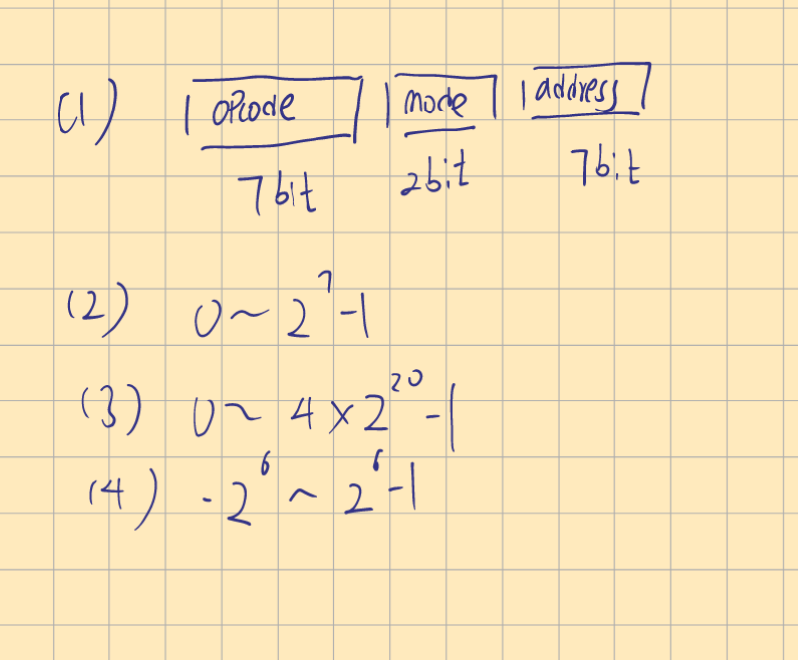 (1) opcode mode address
7bit 2bit 7bit
(2) 0 ~ 2^7 - 1
(3) 0 ~ 4 × 2^20 - 1
(4) -2^6 ~ 2^6 - 1